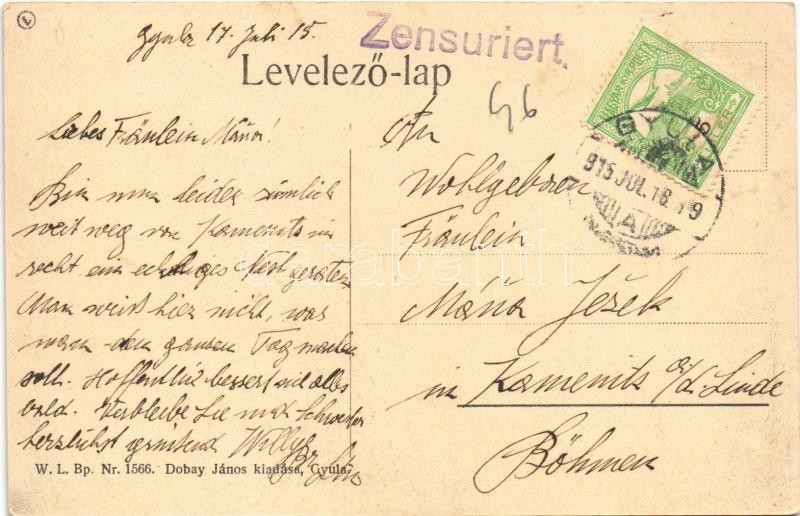 Gyula 17. Juli 15.
Zensuriert.
Levelező-lap
46
Liebes Fräulein Máňa!
Bin nun leider ziemlich
weit weg von Kamenitz in
recht ein Nest geraten
Man weiß hier nicht, was
man den ganzen Tag machen
soll. Hoffentlich bessert sich alles
bald. Verbleibe Sie und Schwester
herzlichst grüßend Willy
An
Wohlgeboren
Fräulein
Máňa Ježek
in Kamenitz a/d. Linde
Böhmen
GYULA
915 JUL. 16.
A
W. L. Bp. Nr. 1566. Dobay János kiadása, Gyula.
darabanth